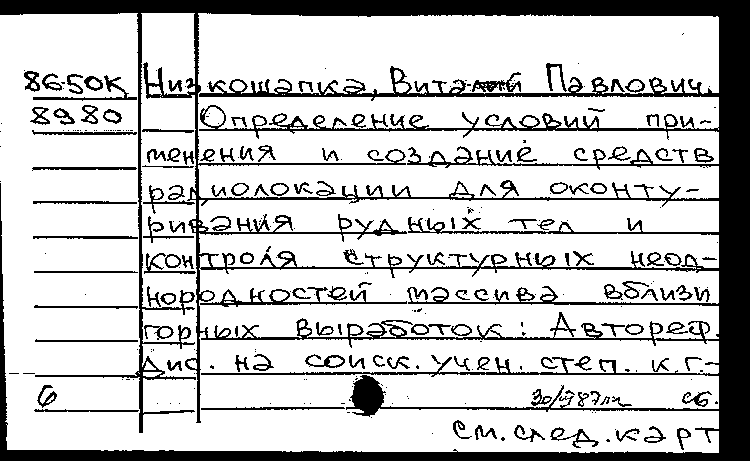 86-50К Низкошапка, Виталий Павлович.
8980 Определение условий при-
менения и создание средств
радиолокации для оконту-
ривания рудных тел и
контроля структурных неод-
нородностей массива вблизи
горных выработок: Автореф.
дис. на соиск. учен. степ. к.г.-
6 сб.
см. след. карт